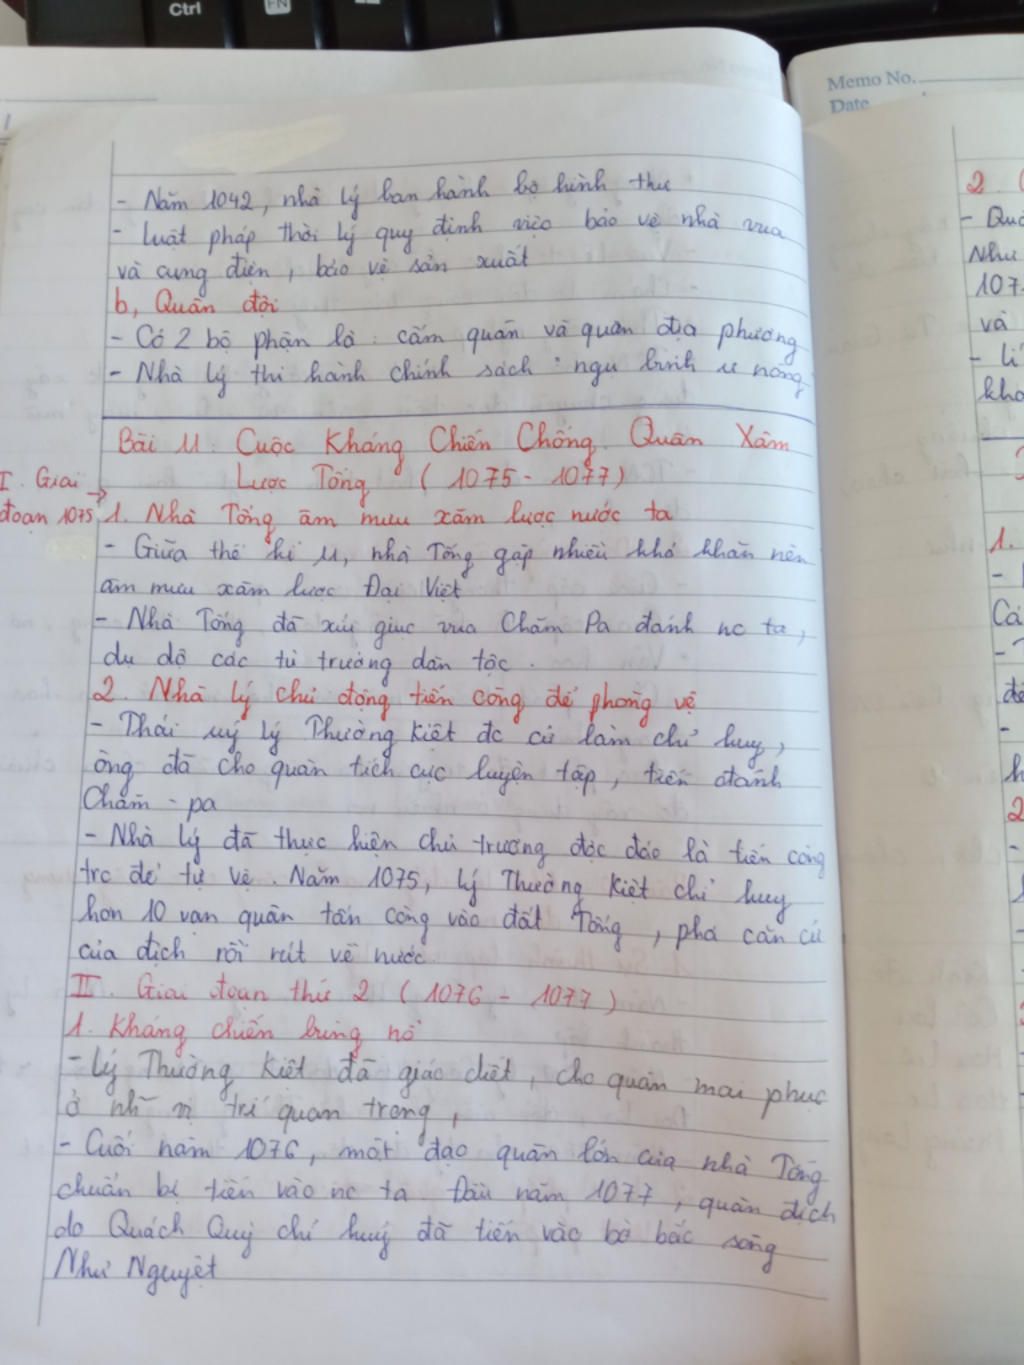 Ctrl
FN
Memo No.
Date
- Năm 1042, nhà lý ban hành bộ hình thư
- luật pháp thời lý quy định việc bảo vệ nhà vua
và cung điện, bảo vệ sản xuất
b, Quân đội
- Có 2 bộ phận là : cấm quân và quân địa phương
- Nhà lý thi hành chính sách " ngụ binh ư nông
Bài 11 : Cuộc Kháng Chiến Chống Quân Xâm
Lược Tống ( 1075 - 1077 )
I. Giai
đoạn 1075
1. Nhà Tống âm mưu xâm lược nước ta
- Giữa thế kỉ 11, nhà Tống gặp nhiều khó khăn nên
âm mưu xâm lược Đại Việt
- Nhà Tống đã xúi giục vua Chăm Pa đánh nc ta,
dụ dỗ các tù trưởng dân tộc .
2. Nhà lý chủ động tiến công để phòng vệ
- Thái uý lý Thường Kiệt đc cử làm chỉ huy,
ông đã cho quân tích cực luyện tập, tiến đánh
Chăm - pa
- Nhà lý đã thực hiện chủ trương độc đáo là tiến công
trc để tự vệ. Năm 1075, lý Thường Kiệt chỉ huy
hơn 10 vạn quân tấn công vào đất Tống, phá căn cứ
của địch rồi rút về nước
II. Giai đoạn thứ 2 ( 1076 - 1077 )
1. Kháng chiến bùng nổ
- Lý Thường Kiệt đã giáo chiết, cho quân mai phục
ở nh~ vị trí quan trọng,
- Cuối năm 1076, một đạo quân lớn của nhà Tống
chuẩn bị tiến vào nc ta. Đầu năm 1077, quân địch
do Quách Quỳ chỉ huy đã tiến vào bờ bắc sông
Như Nguyệt
2.
- Quâ
Như
107
và
- lí
khô
1.
-
Cá
-
để
-
h
2
-